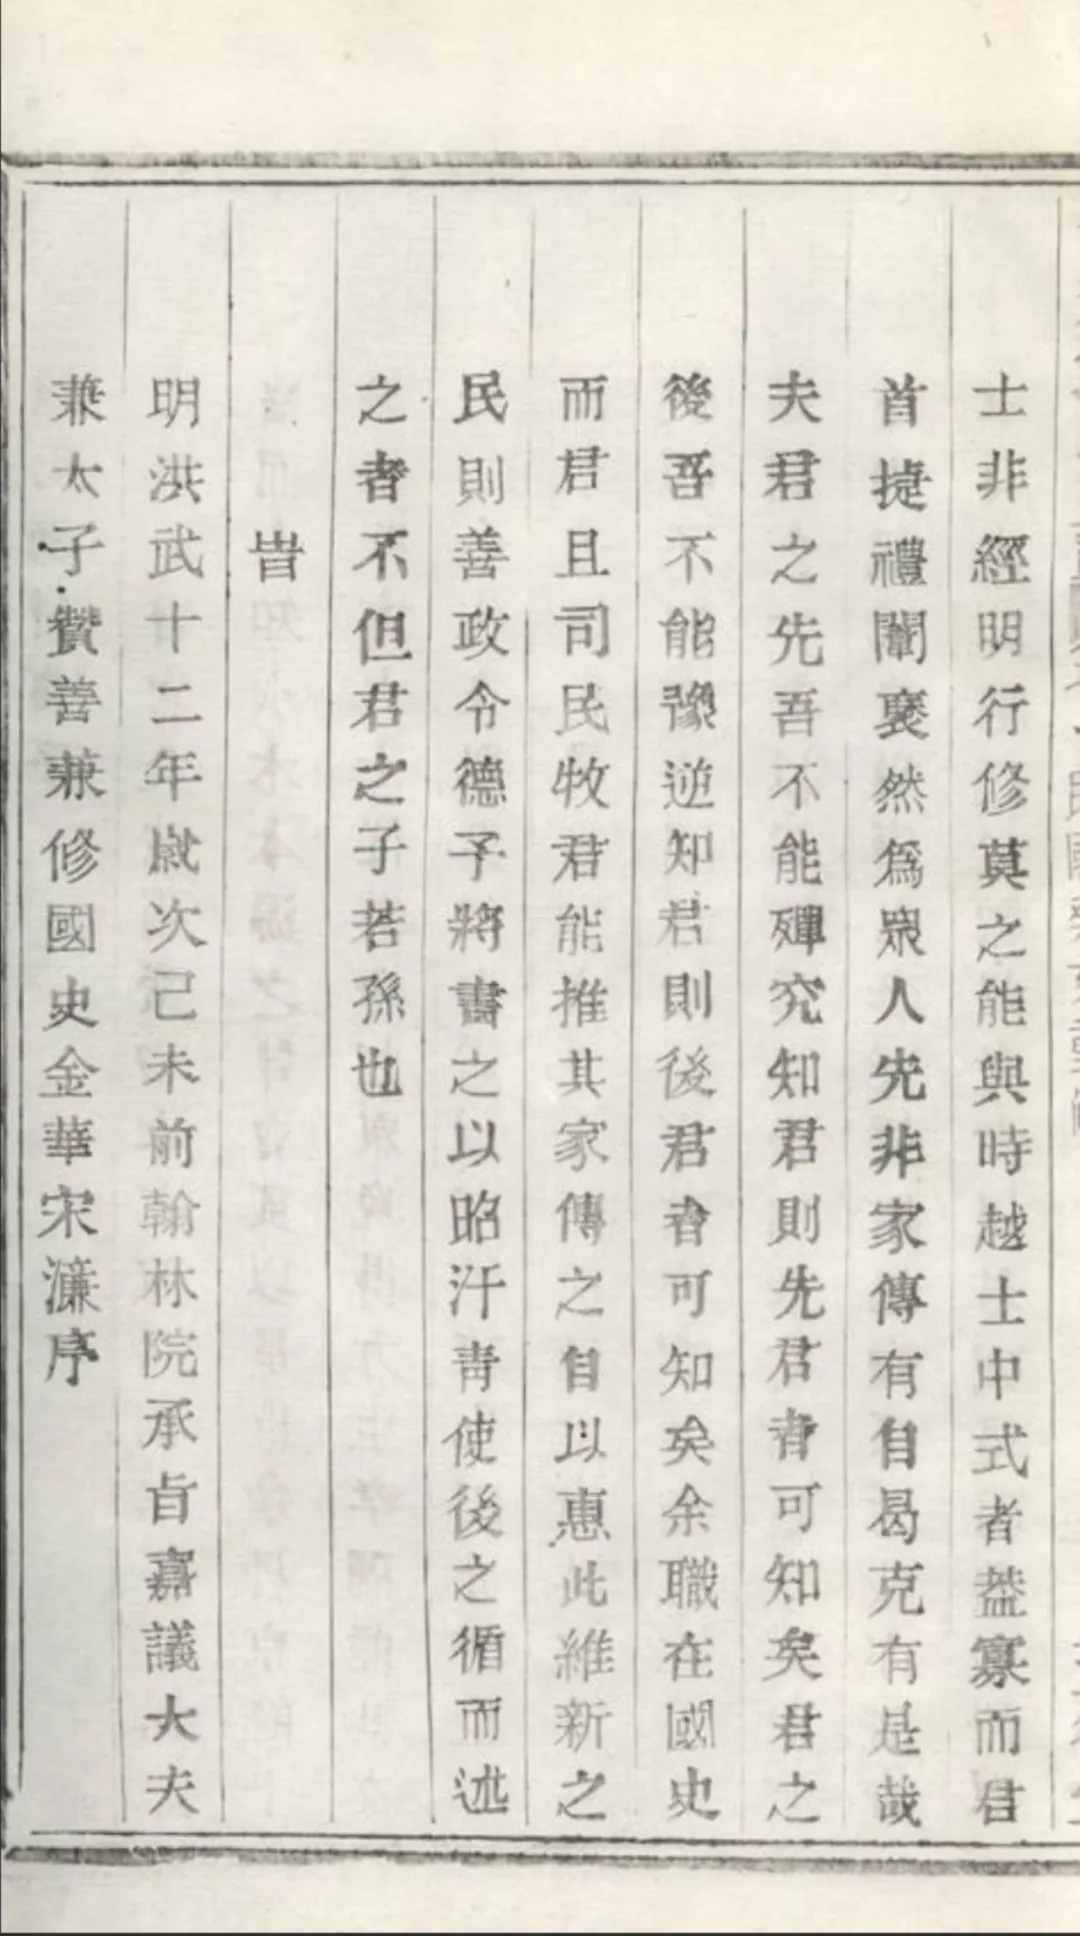 士非經明行修莫之能與時越士中式者葢寡而君
首㨗禮闈裦然爲衆人先非家傳有自曷克有是哉
夫君之先吾不能殫究知君則先君者可知矣君之
後吾不能豫逆知君則後君者可知矣余職在國史
而君且司民牧君能推其家傳之自以惠此維新之
民則善政令德予將書之以昭汗靑使後之循而述
之者不但君之子若孫也
旹
明洪武十二年歲次己未前翰林院承㫖嘉議大夫
兼太子贊善兼修國史金華宋濂序